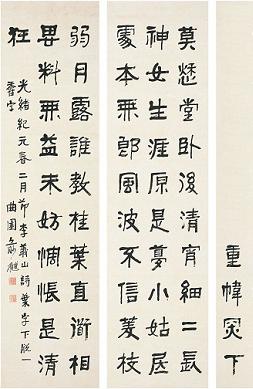 重幃罙下
莫愁堂臥後清宵細二長
神女生涯原是夢小姑居
處本無郎風波不信菱枝
弱月露誰教桂葉直道相
思料無益未妨惆悵是清
狂
光緒紀元春二月節李義山詩葉字下脫一
香字
曲園俞樾